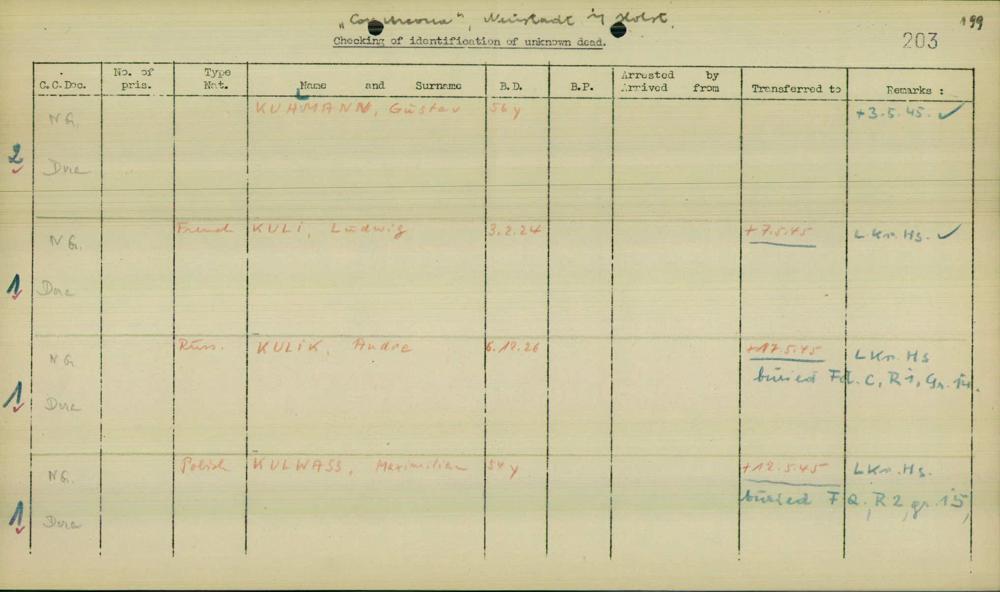 ", Neustadt i/ Holst.
199
Checking of identification of unknown dead.
203
C.C.Doc. No. of pris. Type Nat. Name and Surname B.D. B.P. Arrested by Arrived from Transferred to Remarks :
N.G. KUHMANN, Gustav 56 y +3.5.45. ✓
2 Dora
N.G. French KULI, Ludwig 3.2.24 +7.5.45 L.Kr.Hs. ✓
1 Dora
N.G. Russ. KULIK, Andre 6.12.26 +17.5.45 L Kr. Hs
buried Fd. C, R 1, Gr. 14.
1 Dora
N.G. Polish KULWASS, Maximilian 54 y +12.5.45 L Kr. Hs.
buried F Q, R 2, gr. 15,
1 Dora